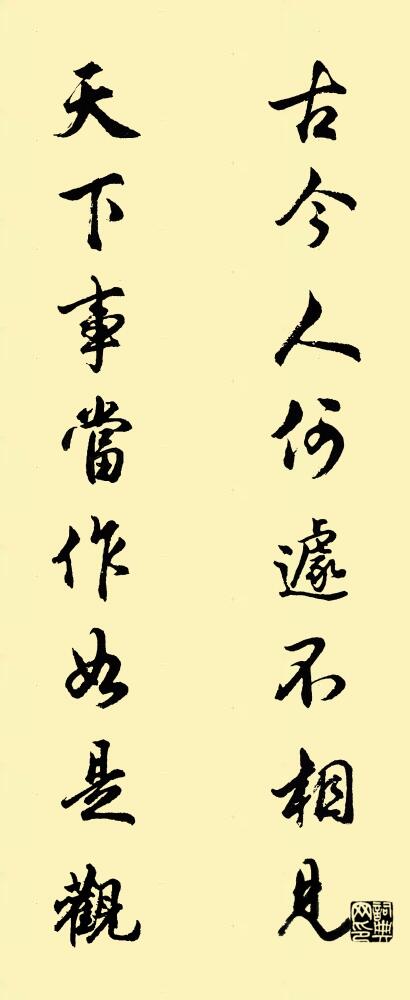 古今人何遽不相見
天下事當作如是觀
詞典網印